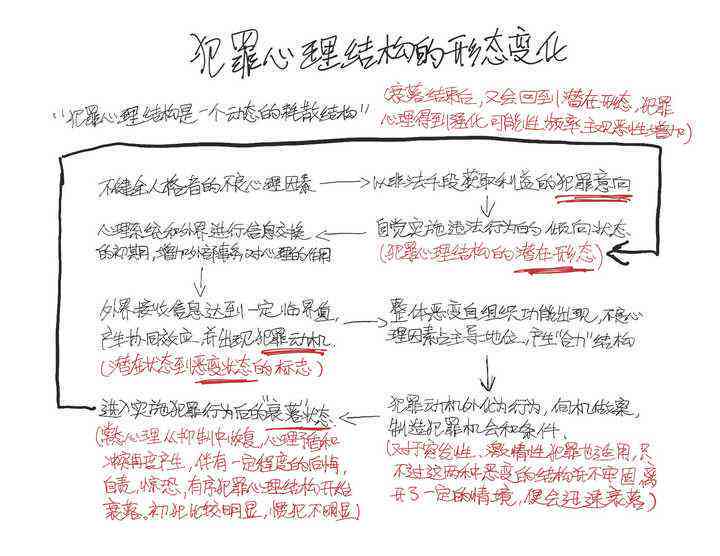 犯罪心理结构的形态变化
"犯罪心理结构是一个动态的耗散结构"
(衰落结束后,又会回到潜在形态,犯罪
心理得到强化可能性,频率,主观恶性增加)
不健全人格者的不良心理因素
以非法手段获取利益的犯罪意向
自觉实施违法行为的倾向状态
(犯罪心理结构的潜在形态)
心理系统和外界进行信息交换
的初期,增加外部因素对心理的作用
外界接收信息达到一定临界值,
产生协同效应,并出现犯罪动机.
(潜在状态到恶变状态的标志)
整体恶变自组织功能出现,不良心
理因素占主导地位,产生"合力"结构
犯罪动机外化为行为,伺机做案,
制造犯罪机会和条件.
(对于突发性、激情性犯罪也适用,只
不过这两种恶变的结构并不牢固,离
开了一定的情境,便会迅速衰落)
进入实施犯罪行为后的"衰落"状态
(常态心理从抑制中恢复,心理矛盾和
冲突再度产生,伴有一定程度的后悔,
自责,惊恐,有序犯罪心理结构开始
衰落。初犯比较明显,惯犯不明显)